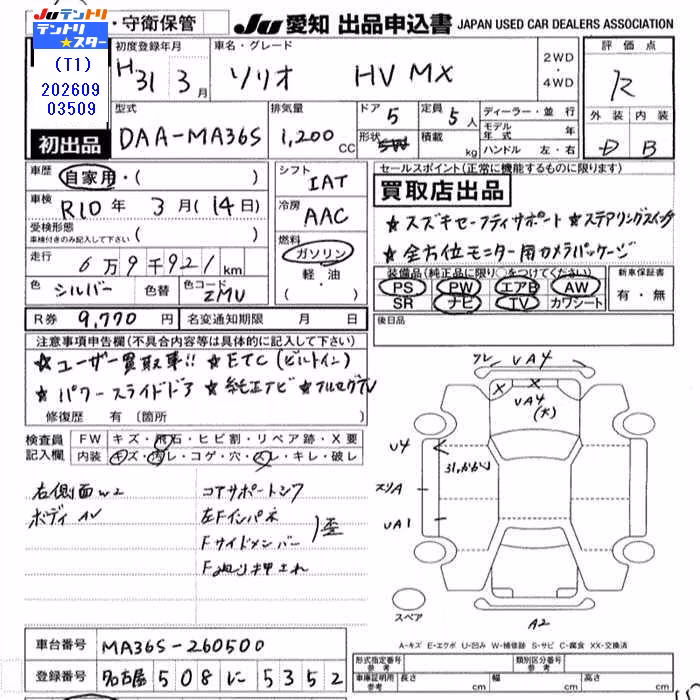 ・守衛保管
JU 愛知 出品申込書 JAPAN USED CAR DEALERS ASSOCIATION
テントリ
テントリ
★スター
(T1)
202609
03509
初出品
初度登録年月 車名・グレード 2WD・4WD 評価点
H31 3月 ソリオ HV MX R
型式 排気量 ドア 定員 ディーラー・並行 外装 内装
DAA-MA36S 1,200 CC 5 5人 モデル年式 年 D B
形状 積載 kg ハンドル 左・右
車歴 自家用・( ) シフト IAT セールスポイント(正常に機能するものに限ります)
買取店出品
車検 R10年 3月(14日) 冷房 AAC
★スズキセーフティサポート ★ステアリングスイッチ
受検形態 車検付きのみ記入して下さい ( ) 燃料
★全方位モニター用カメラパッケージ
走行 6万9千921km ガソリン・軽・油・( )
装備品(純正品に限り○をつけてください) 新車保証書
PS PW エアB AW 有・無
SR ナビ TV カワシート
色 シルバー 色替 色コード ZMU
R券 9,770円 名変通知期限 月 日 後日品
注意事項申告欄(不具合内容等は具体的に記入して下さい)
★ユーザー買取車!! ★ETC(ビルトイン)
★パワースライドドア ★純正ナビ ★フルセグTV
修復歴 有 〔箇所 〕
検査員記入欄 FW キズ・飛石・ヒビ割・リペア跡・X要
内装 キズ・汚レ・コゲ・穴・スレ・キレ・破レ
右側面W2 コアサポートシワ
ボディ AV 左Fインパネ
Fサイドメンバー 歪
F廻り押され
フレ VA4
X X
VA4
(大)
U4
スリA
UA1
スペア
A2
A-キズ E-エクボ U-凹み W-補修跡 S-サビ C-腐食 XX-交換済
車台番号 MA36S-260500
形式指定番号 参考 類別区分番号 参考
登録番号 名古屋 508 に 5352
車庫証明用 参考 長さ cm 幅 cm 高さ cm